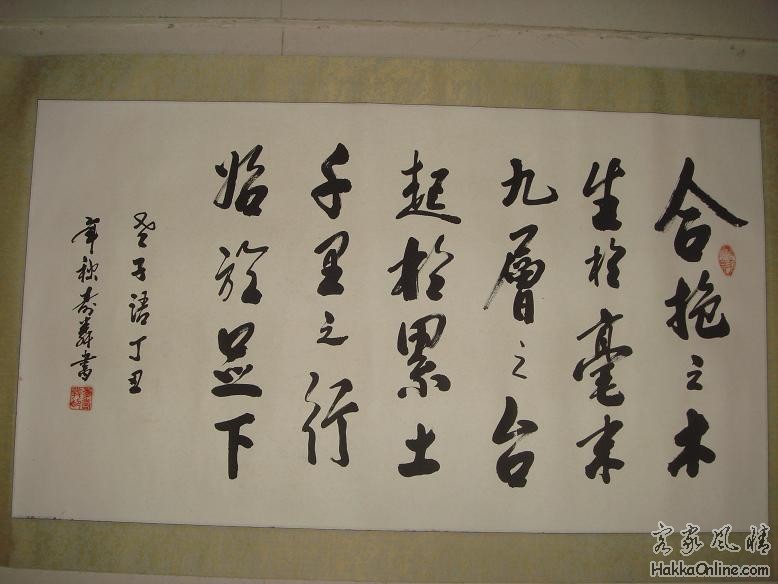 合抱之木
生於毫末
九層之台
起於累土
千里之行
始於足下
老子語丁丑
年秋壽彝書
客家风情
HakkaOnline.com